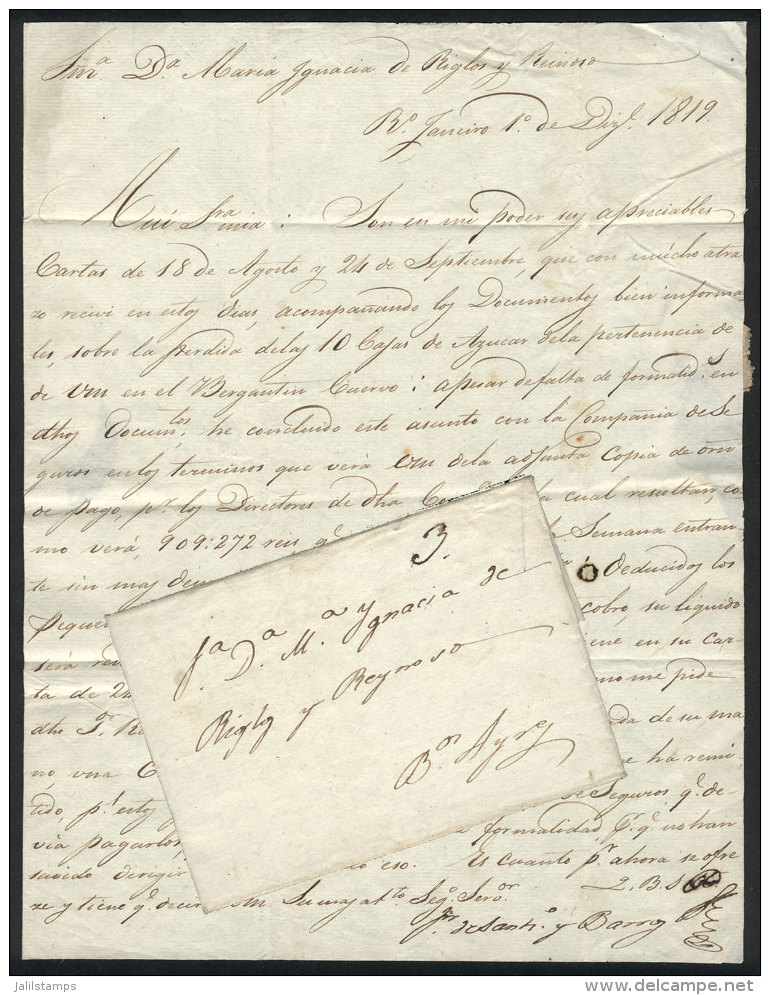 Sra. Da. Maria Ygnacia de Riglos y Reinoso
Ro. Janeiro 1o. de Dizre. 1819
Mui Sra. mia: Son en mi poder sus apreciables
Cartas de 18 de Agosto y 24 de Septiembre, que con mucho atra
zo recivi en estos dias, acompañando los Documentos bien informa
les, sobre la perdida delas 10 Cajas de Azucar dela pertenencia de
de Vm en el Bergantin Cuervo: apesar de falta de formalids. en
dhos Documtos. he concluido este asunto con la Compania de Se
guros en los terminos que verá Vm dela adjunta Copia de orn
de pago, pr. los Directores de dha Com la cual resultan, co
mo verá, 909:272 reis q. Semana entran
te sin mas deducidos los
peque cobro, su liquido
será re iene en su Car
ta de 24 mo me pide
dho Sr. R da de su ma
no, una C e ha remi
tido, pr. estos de Seguros q. de
via pagarlos, formalidad, pr. q. no han
savido dirigir eso. Es cuanto pr. ahora se ofre
ze y tiene q. decir Su mas atto. Sego. Seror.
Q. B. S.
de Santo. y Barros
3.
Sa. Da. Ma. Ygnacia de
Riglos y Reynoso
Bos. Ayres
jalilstamps
delcampe.net